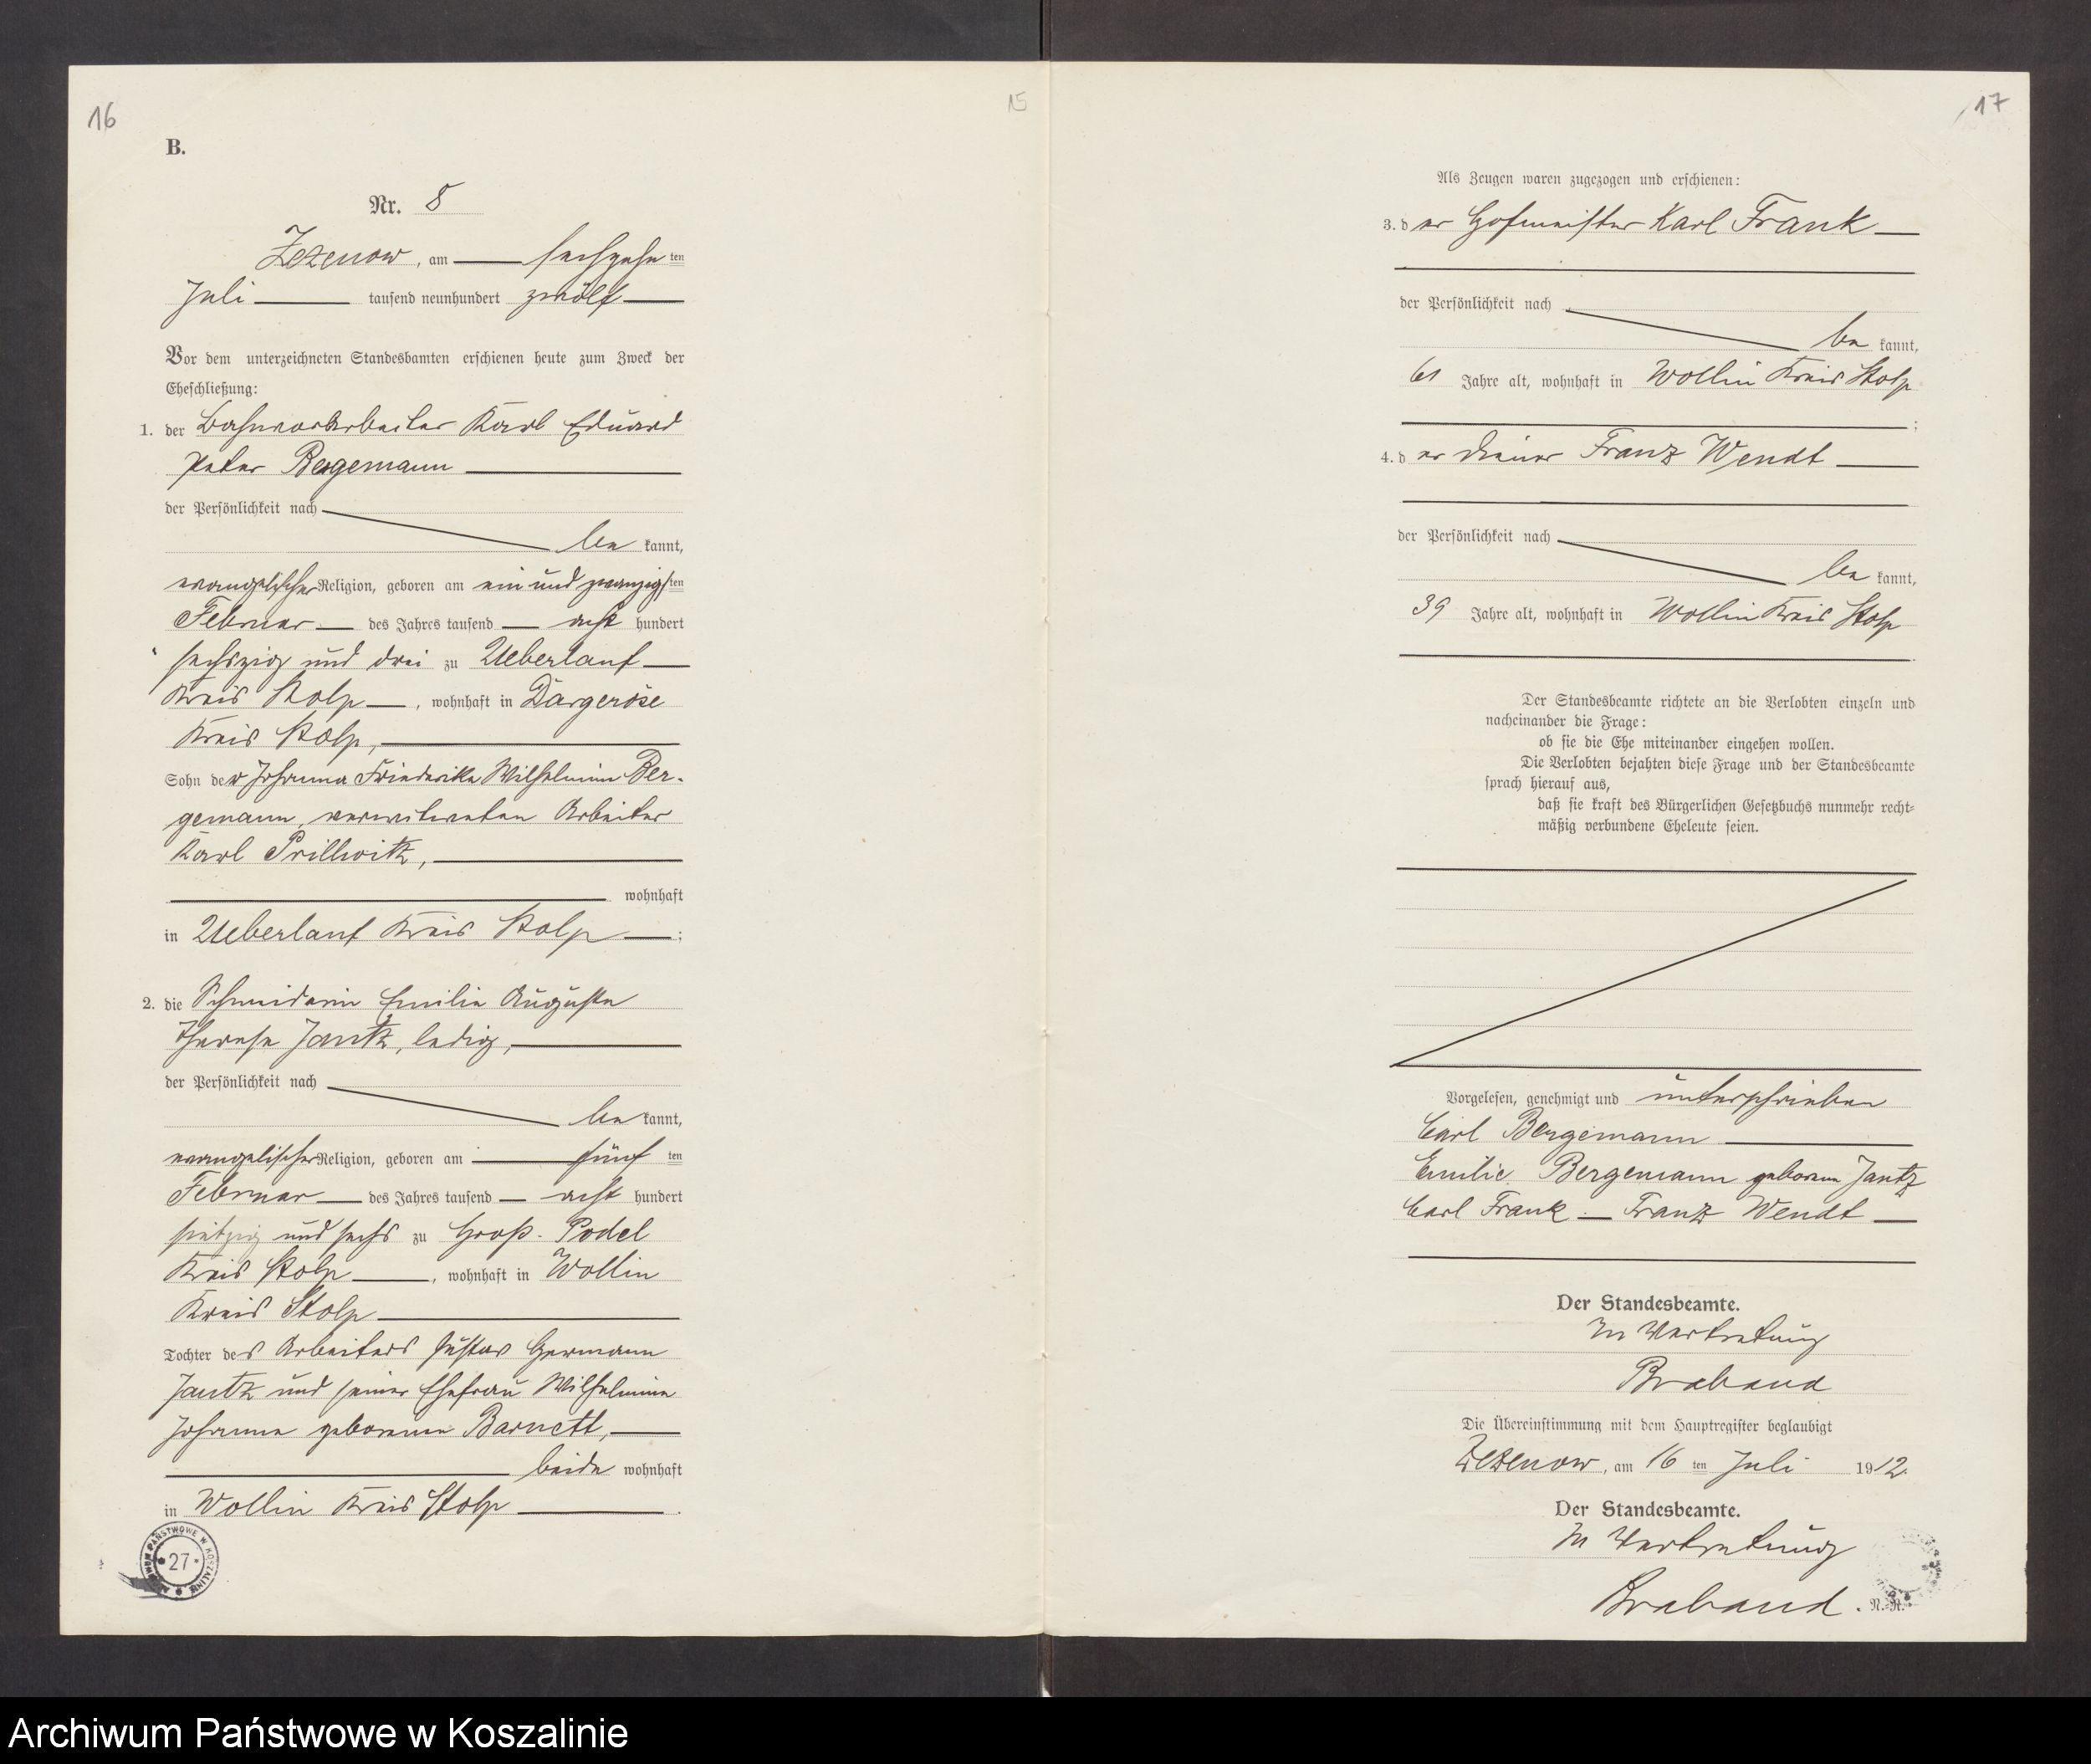 16
B.
Nr. 8
Zezenow, am sechzehnten
Juli tausend neunhundert zwölf
Vor dem unterzeichneten Standesbamten erschienen heute zum Zweck der
Eheschließung:
1. der Bahnvorarbeiter Karl Eduard
Peter Bergemann
der Persönlichkeit nach
bekannt,
evangelischer Religion, geboren am ein und zwanzigsten
Februar des Jahres tausend acht hundert
sechszig und drei zu Ueberlauf
Kreis Stolp, wohnhaft in Dargeröse
Kreis Stolp,
Sohn der Johanna Friederike Wilhelmine Ber-
gemann, verwitweten Arbeiter
Karl Prillwitz,
wohnhaft
in Ueberlauf Kreis Stolp;
2. die Schneiderin Emilie Auguste
Therese Jantz, ledig,
der Persönlichkeit nach
bekannt,
evangelischer Religion, geboren am fünften
Februar des Jahres tausend acht hundert
siebzig und sechs zu Groß-Podel
Kreis Stolp, wohnhaft in Wollin
Kreis Stolp
Tochter des Arbeiters Gustav Hermann
Jantz und seiner Ehefrau Wilhelmine
Johanne geborenen Barnett,
beide wohnhaft
in Wollin Kreis Stolp.
ARCHIWUM PAŃSTWOWE W KOSZALINIE
27
15
17
Als Zeugen waren zugezogen und erschienen:
3. der Hofmeister Karl Frank
der Persönlichkeit nach
bekannt,
61 Jahre alt, wohnhaft in Wollin Kreis Stolp
;
4. der Diener Franz Wendt
der Persönlichkeit nach
bekannt,
39 Jahre alt, wohnhaft in Wollin Kreis Stolp
.
Der Standesbeamte richtete an die Verlobten einzeln und
nacheinander die Frage:
ob sie die Ehe miteinander eingehen wollen.
Die Verlobten bejahten diese Frage und der Standesbeamte
sprach hierauf aus,
daß sie kraft des Bürgerlichen Gesetzbuchs nunmehr recht-
mäßig verbundene Eheleute seien.
Vorgelesen, genehmigt und unterschrieben
Carl Bergemann
Emilie Bergemann geborene Jantz
Carl Frank. — Franz Wendt
Der Standesbeamte.
In Vertretung
Braband
Die Übereinstimmung mit dem Hauptregister beglaubigt
Zezenow, am 16ten Juli 1912.
Der Standesbeamte.
In Vertretung
Braband.
Archiwum Państwowe w Koszalinie